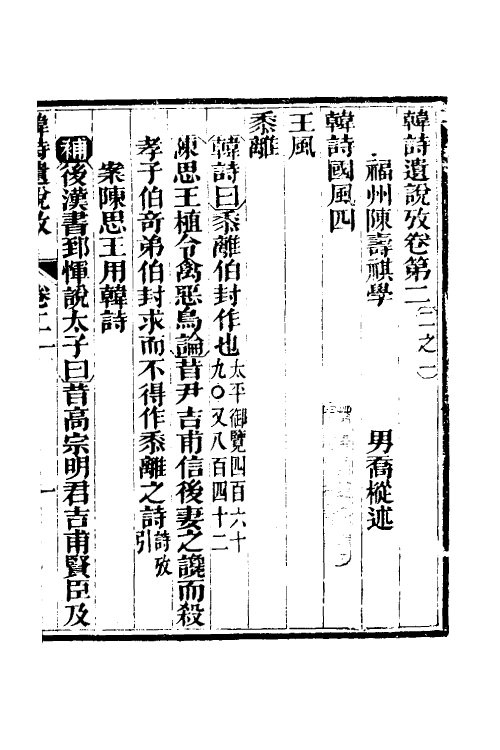 韓詩遺說攷卷第二 二之一
福州陳壽祺學 男喬樅述
韓詩國風四
王風
黍離
韓詩曰黍離伯封作也太平御覽四百六十九〇又八百四十二
陳思王植令禽惡鳥論昔尹吉甫信後妻之讒而殺
孝子伯奇弟伯封求而不得作黍離之詩詩攷引
案陳思王用韓詩
補後漢書郅惲說太子曰昔高宗明君吉甫賢臣及
韓詩遺說攷 卷二一 一